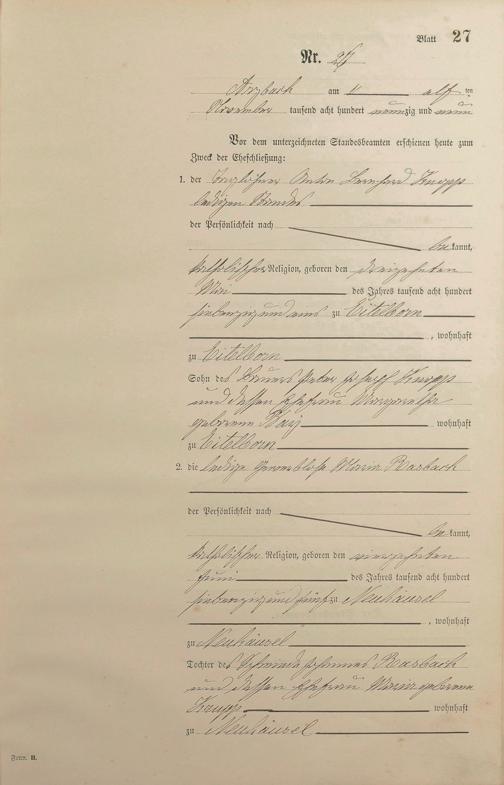 Blatt 27
Nr. 27
Arzbach am 11 elf ten
November tausend acht hundert neunzig und neun
Vor dem unterzeichneten Standesbeamten erschienen heute zum
Zweck der Eheschließung:
1. der Taglöhner Anton Bernhard Knopp
ledigen Standes
der Persönlichkeit nach
be kannt,
katholischer Religion, geboren den dreizehnten
Mai des Jahres tausend acht hundert
siebenzig und eins zu Eitelborn
, wohnhaft
zu Eitelborn
Sohn des Peter Josef Knopp
und dessen Ehefrau Margaretha
geborene wohnhaft
zu Eitelborn
2. die ledige gewerblose Maria Basbach
der Persönlichkeit nach
be kannt,
katholischer Religion, geboren den vierzehnten
Juni des Jahres tausend acht hundert
siebenzig und fünf zu Neuhäusel
, wohnhaft
zu Neuhäusel
Tochter des Johannes Basbach
und dessen Ehefrau Maria geborene
Knopp wohnhaft
zu Neuhäusel
Form. II.